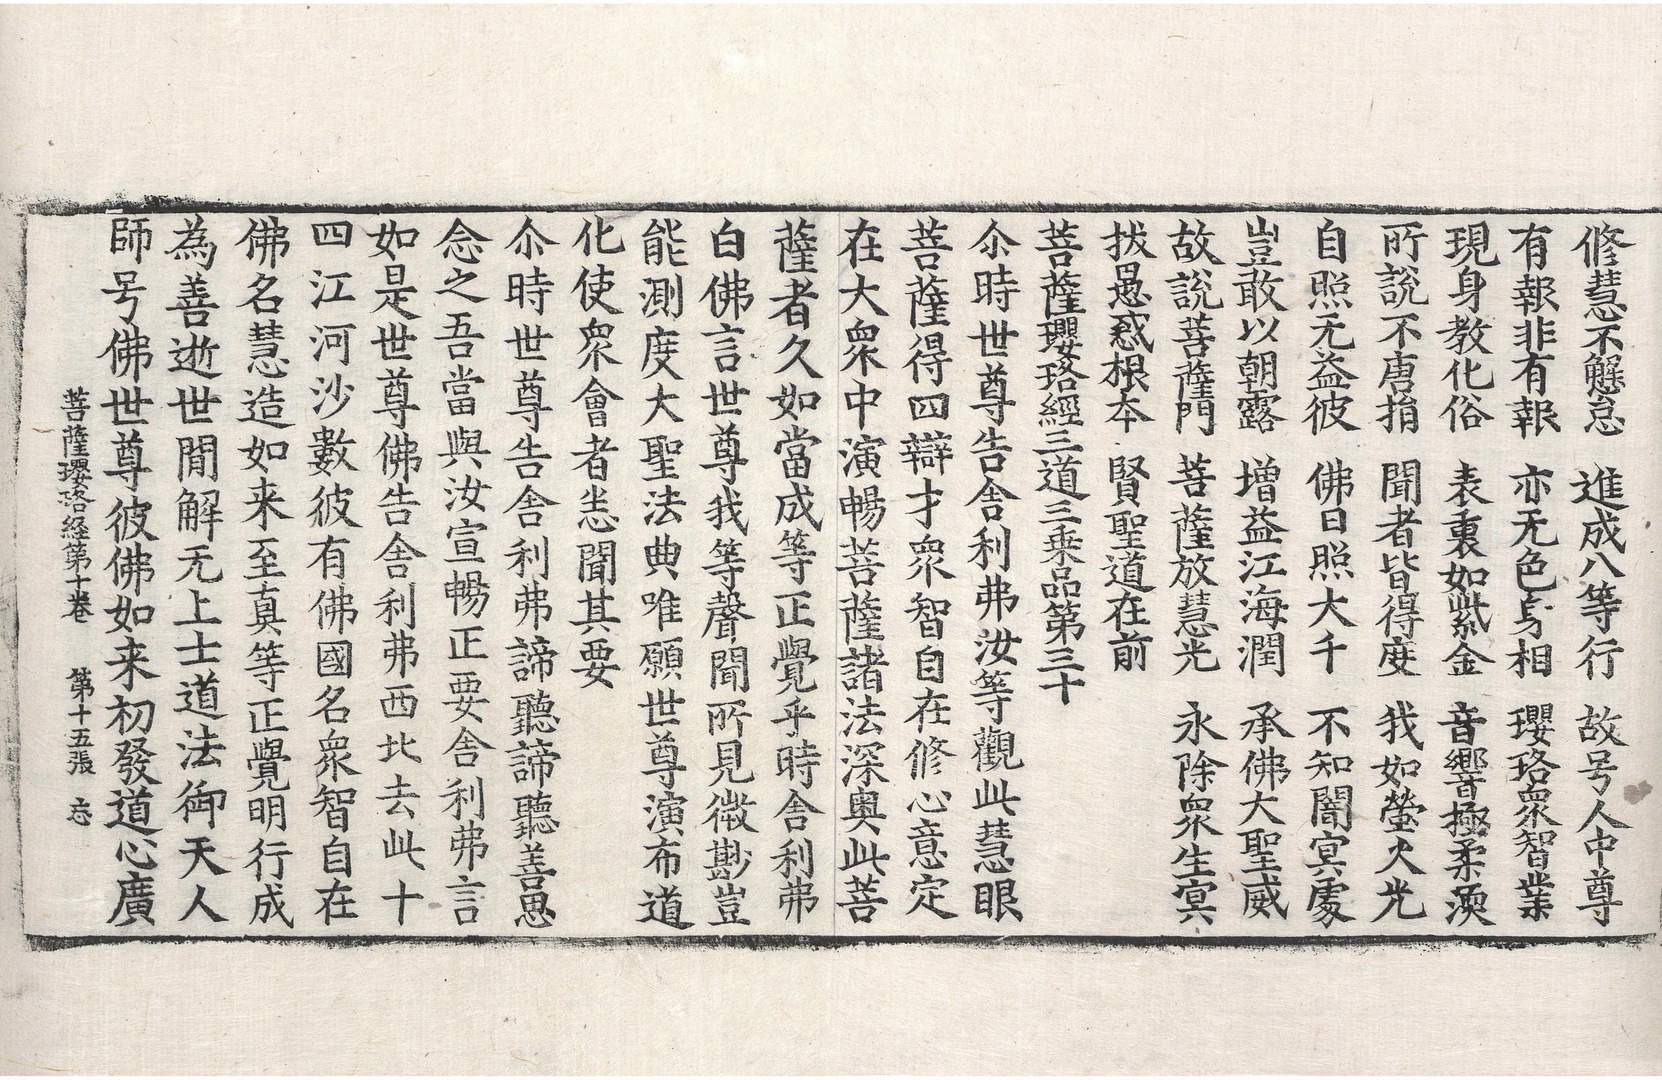 修慧不懈怠　進成八等行　故号人中尊
有報非有報　亦无色身相　瓔珞衆智業
現身教化俗　表裏如紫金　音響極柔濡
所說不唐捐　聞者皆得度　我如螢火光
自照无益彼　佛日照大千　不知闇冥處
豈敢以朝露　增益江海潤　承佛大聖威
故說菩薩門　菩薩放慧光　永除衆生冥
拔愚惑根本　賢聖道在前
菩薩瓔珞經三道三乗品第三十
尒時世尊告舍利弗汝等觀此慧眼
菩薩得四辯才衆智自在修心意定
在大衆中演暢菩薩諸法深奥此菩
薩者久如當成等正覺乎時舍利弗
白佛言世尊我等聲聞所見微尠豈
能測度大聖法典唯願世尊演布道
化使衆會者悉聞其要
尒時世尊告舍利弗諦聽諦聽善思
念之吾當與汝宣暢正要舍利弗言
如是世尊佛告舍利弗西北去此十
四江河沙數彼有佛國名衆智自在
佛名慧造如来至真等正覺明行成
為善逝世間解无上士道法御天人
師号佛世尊彼佛如来初發道心廣
菩薩瓔珞経第十卷　第十五張　忘